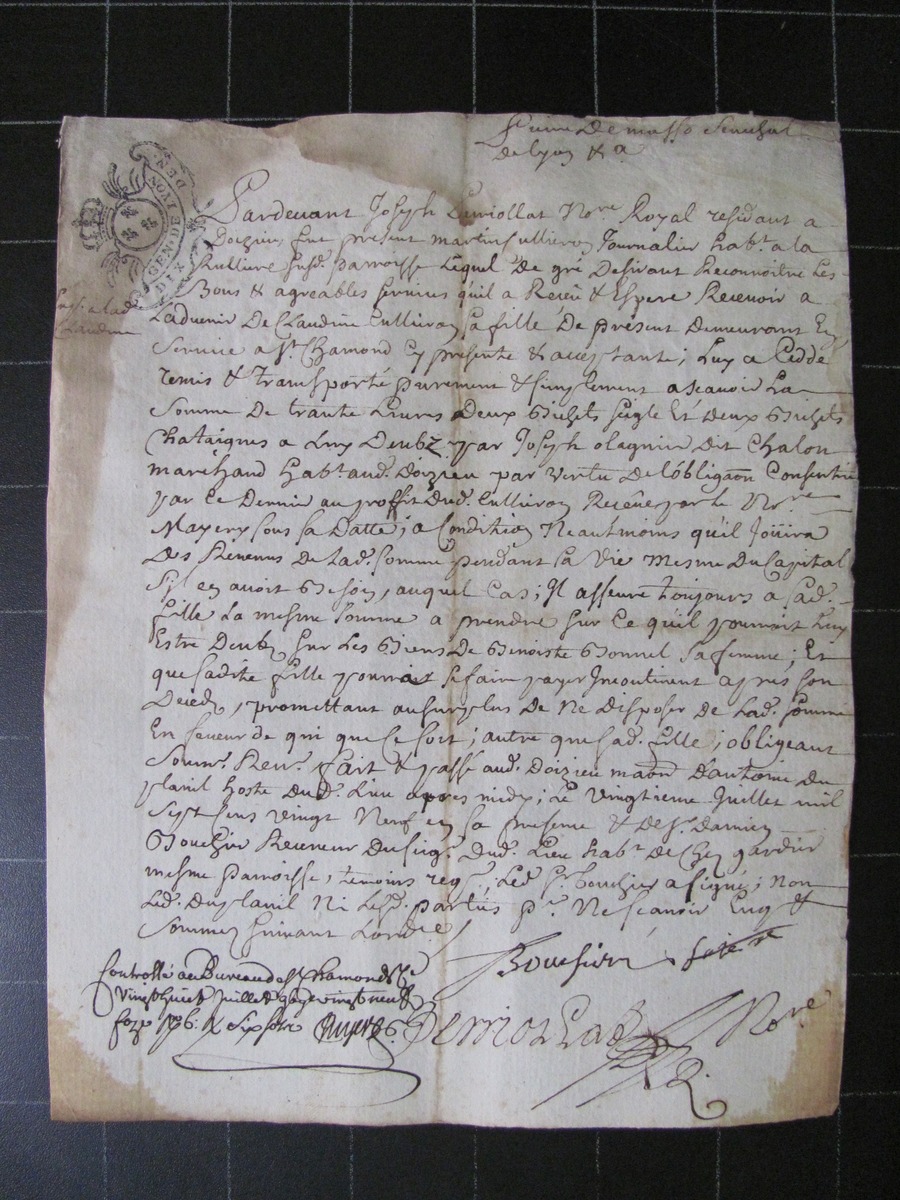 de Lyon & a
GEN. DE LYON
DIX DEN.
Pardevant Joseph Royal residant a
Doizieu fut present Journalier habt. a la
parroisse Lequel De gré Desirant Reconnoitre Les
Bons & agreables services qu'il a Receu & Espere Recevoir a
Ladvenir De Claudine sa fille De present Demeurant En
Service a St. Chamond Cy presente & acceptante; Luy a Cedde
remis & transporté purement & simplement ascavoir La
Somme De trante Livres Deux Bichets seigle Et Deux Bichets
Chataignes a Luy Deubz par Joseph olagnier Dit Chalon
marchand habt. aud. Doizieu par vertu De Lobligaon Consentie
par Ce Dernier au proffit Dud. Receüe par le Nore.
sous sa Datte; a Condition Neantmoins qu'il Joüira
Des Revenus De Lad. somme pendant sa Vie mesme Du Capital
S'il en avoit Besoin, auquel Cas; Il asseure toujours a sad.
fille La mesme somme a prendre sur Ce qu'il pourroit Luy
Estre Deub sur Les Biens De Benoiste Bonnel sa femme; Et
que sadite fille pourroit se faire payer Incontinent apres son
Deced, promettant au surplus De Ne Disposer De Lad. somme
En faveur de qui que Ce soit; autre que sad. fille; obligeant
Soumn. Renn. fait & passé aud. Doizieu maon D'antoine Du
planil hoste Dud. Lieu apres midy; Le vingtieme Juillet mil
Sept Cens vingt Neuf en sa presence & De Sr. Damien
Bouchier Receveur Dud. Lieu habt. De Chez gardier
mesme parroisse, temoins req. Led. Sr. Bouchier a signé; non
Led. Duplanil Ni Lesd. parties pr. Ne scavoir Enq. &
Sommez suivant Lordre
Bouchier
Controllé au Bureau de St. Chamond le
vingthuit Juillet vingt neuf
six sols
Nore